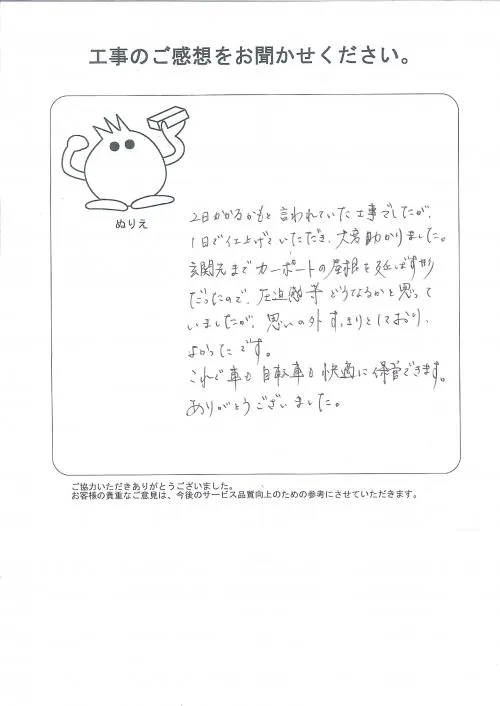 工事のご感想をお聞かせください。
ぬりえ
2日かかるかもと言われていた工事でしたが、
1日で仕上げていただき、大変助かりました。
玄関先までカーポートの屋根を延ばす形
だったので、圧迫感等どうなるかと思って
いましたが、思いの外すっきりとしており、
よかったです。
これで車も自転車も快適に保管できます。
ありがとうございました。
ご協力いただきありがとうございました。
お客様の貴重なご意見は、今後のサービス品質向上のための参考にさせていただきます。